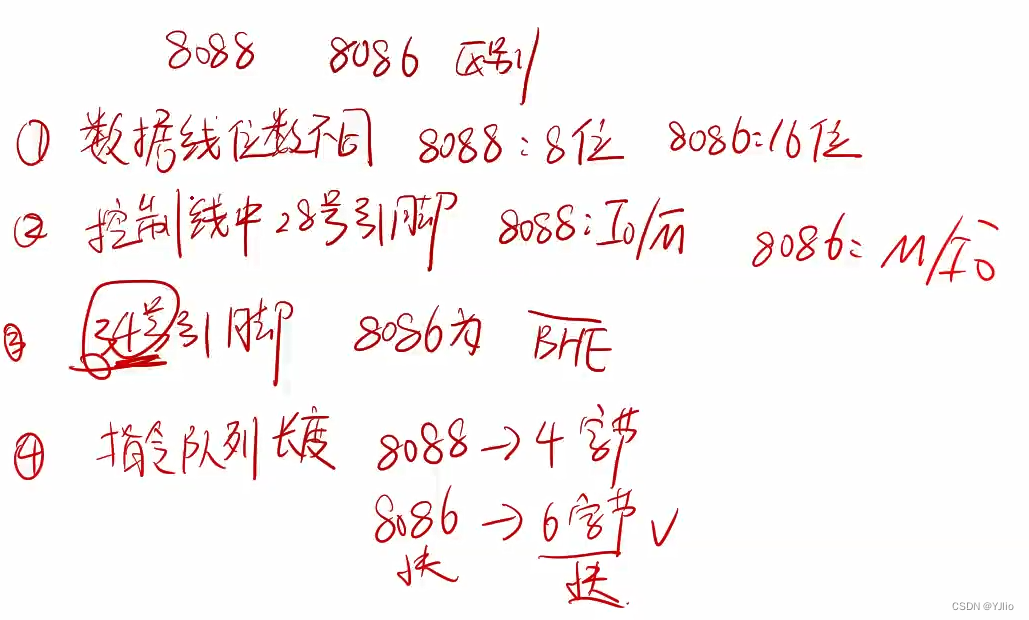 8088 8086 区别
① 数据线位数不同 8088:8位 8086:16位
② 控制线中28号引脚 8088:IO/M̅ 8086: M/I̅O̅
③ 34号引脚 8086为 B̅H̅E̅
④ 指令队列长度 8088→4字节
8086→6字节 √
快 快
CSDN @YJlio